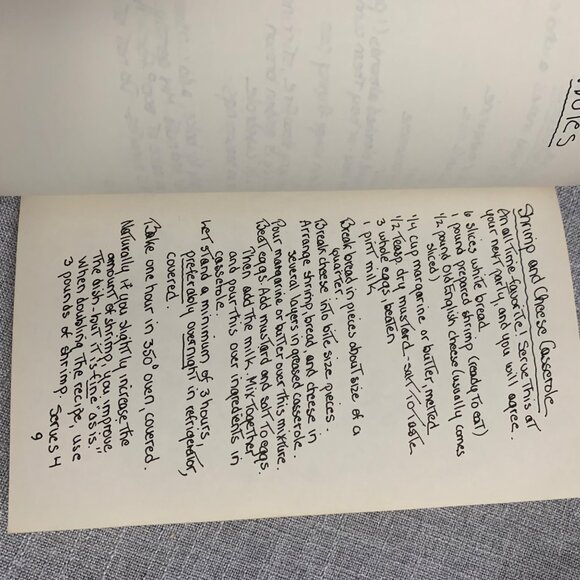 Shrimp and Cheese Casserole
An all time favorite! Serve this at
your next party and you will agree.
6 slices white bread
1 pound prepared shrimp (ready to eat)
1/2 pound Old English cheese (usually comes
sliced)
1/4 cup margarine or butter, melted
1/2 teasp. dry mustard - salt to taste
3 whole eggs, beaten
1 pint milk
Break bread in pieces about size of a
quarter.
Break cheese into bite size pieces.
Arrange shrimp, bread and cheese in
several layers in greased casserole.
Pour margarine or butter over this mixture.
Beat eggs. Add mustard and salt to eggs.
Then add the milk. Mix together
and pour this over ingredients in
casserole.
Let stand a minimum of 3 hours,
preferably overnight in refrigerator,
covered.
Bake one hour in 350° oven, covered.
Naturally if you slightly increase the
amount of shrimp, you improve
the dish - but it is fine "as is."
When doubling the recipe, use
3 pounds of shrimp. Serves 4
9